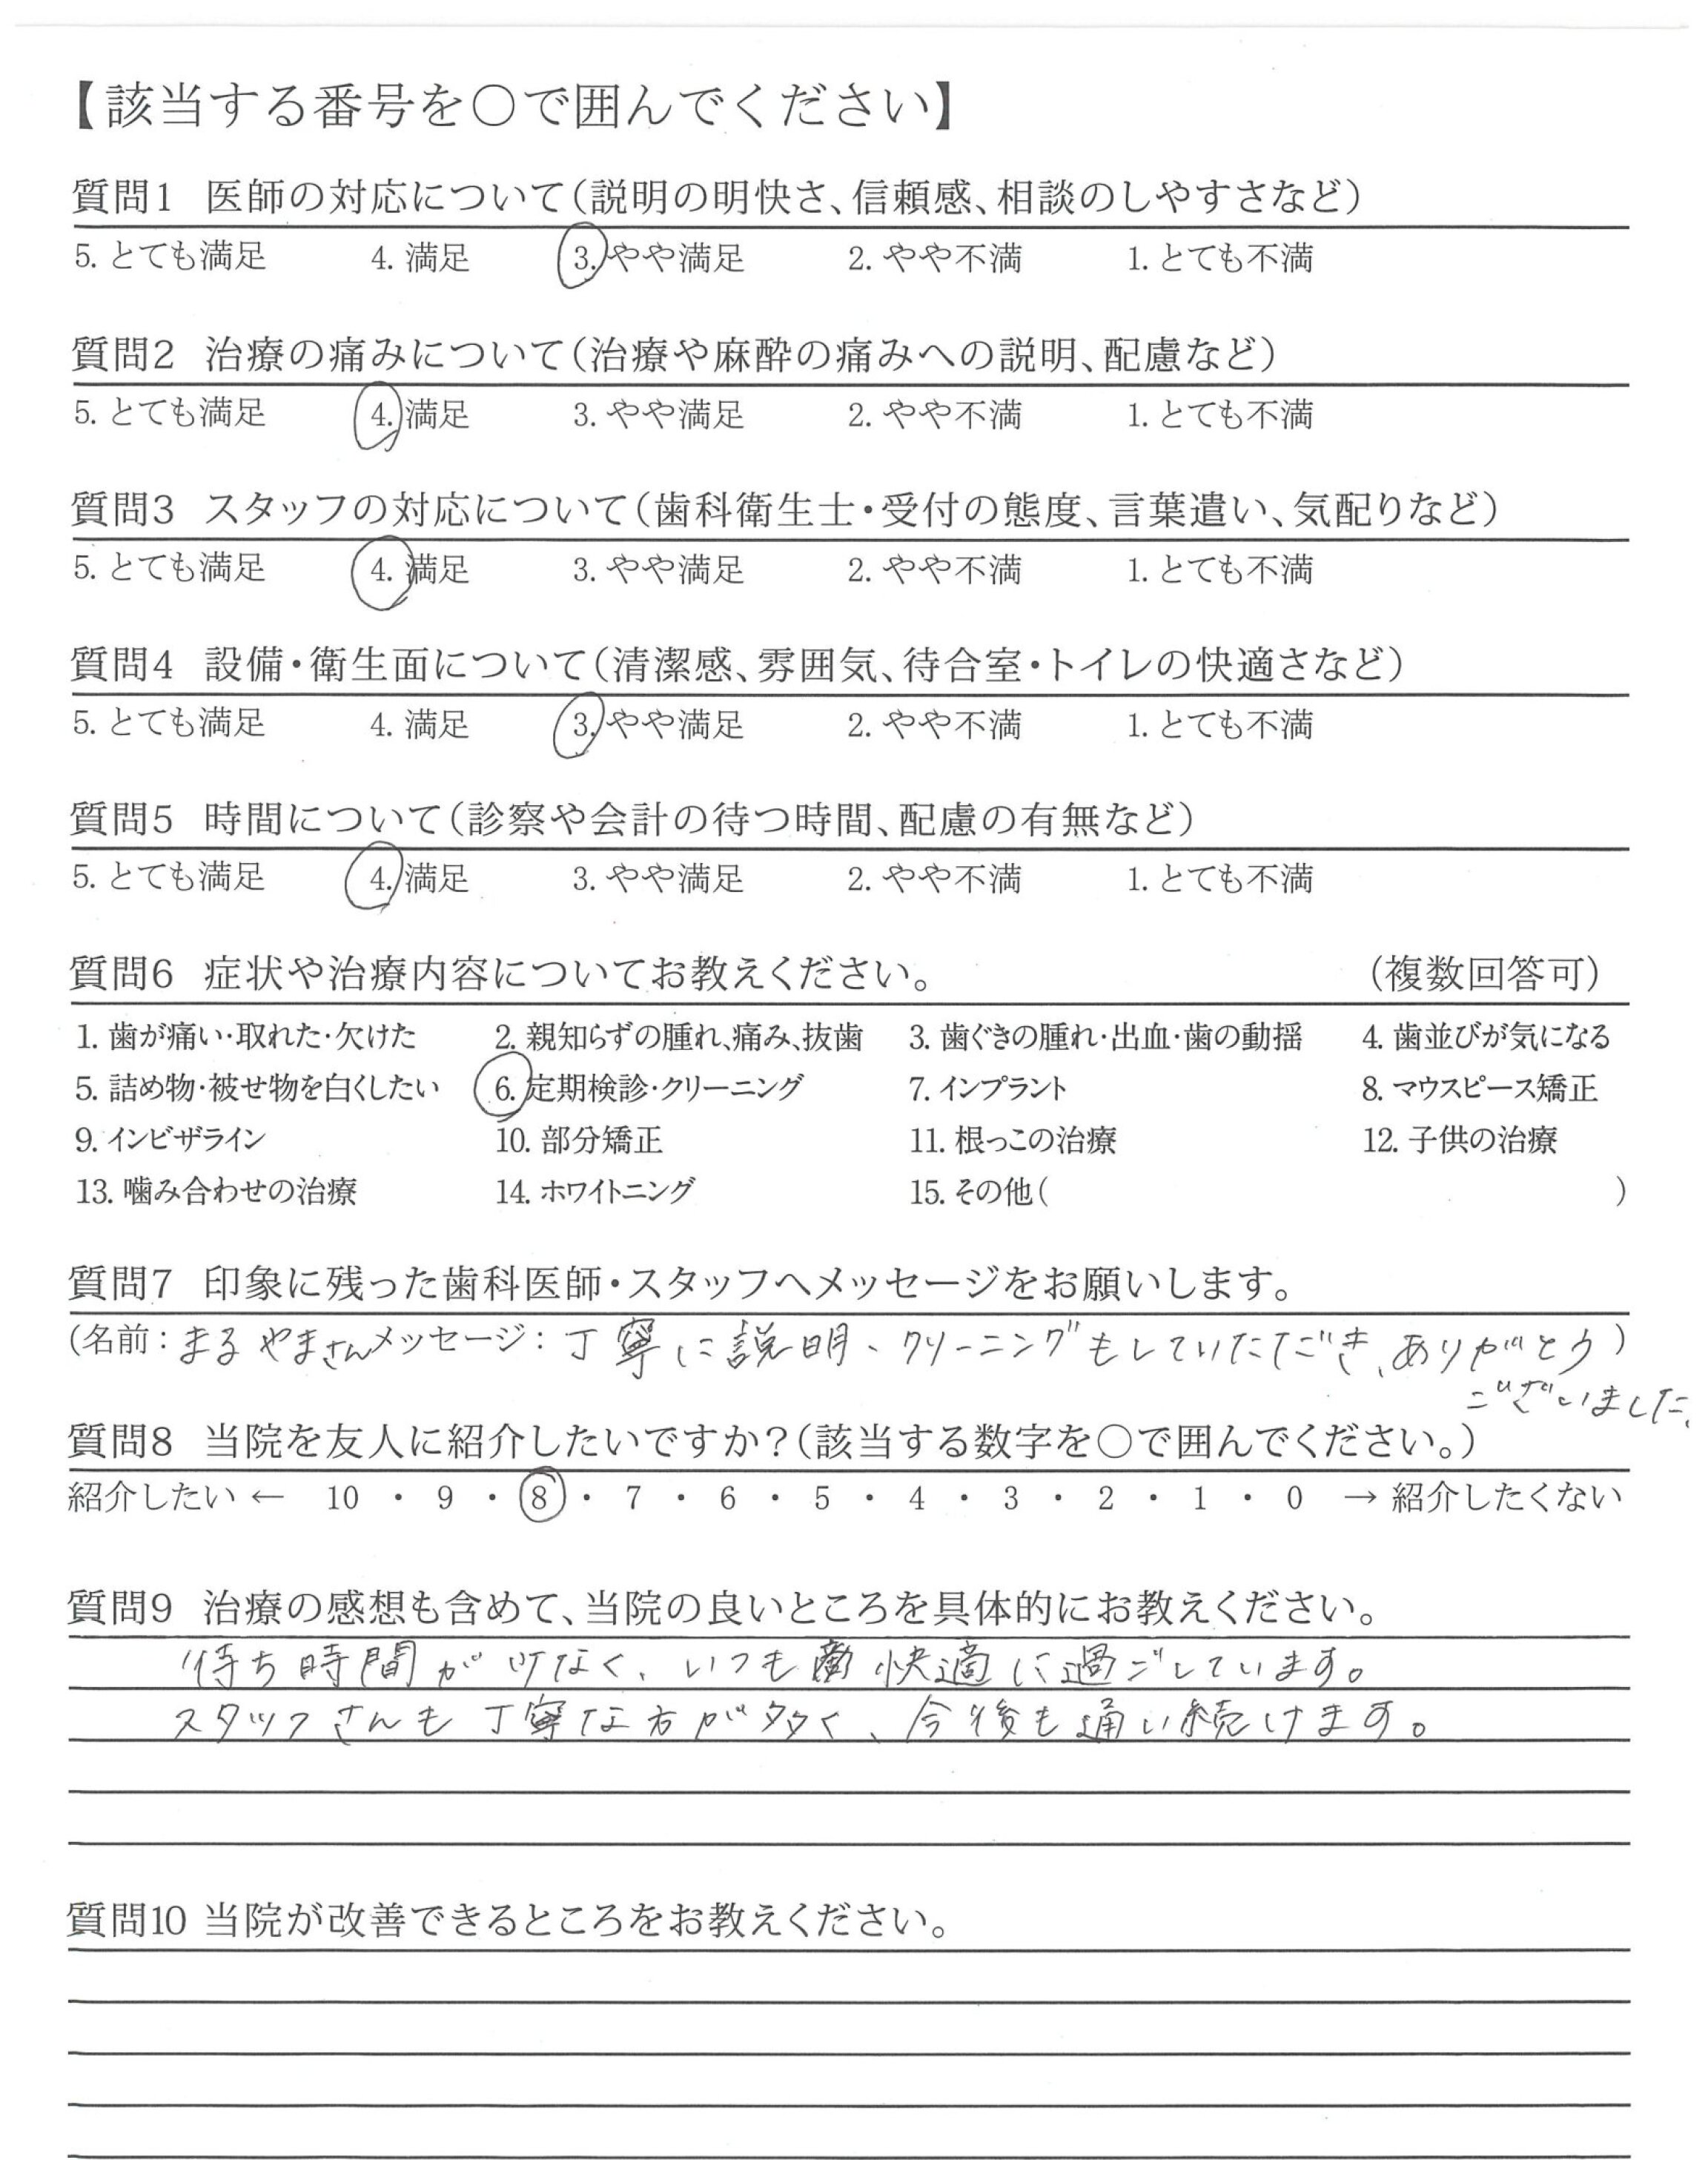 【該当する番号を○で囲んでください】
質問1 医師の対応について(説明の明快さ、信頼感、相談のしやすさなど)
5. とても満足 4. 満足 3. やや満足 2. やや不満 1. とても不満
質問2 治療の痛みについて(治療や麻酔の痛みへの説明、配慮など)
5. とても満足 4. 満足 3. やや満足 2. やや不満 1. とても不満
質問3 スタッフの対応について(歯科衛生士・受付の態度、言葉遣い、気配りなど)
5. とても満足 4. 満足 3. やや満足 2. やや不満 1. とても不満
質問4 設備・衛生面について(清潔感、雰囲気、待合室・トイレの快適さなど)
5. とても満足 4. 満足 3. やや満足 2. やや不満 1. とても不満
質問5 時間について(診察や会計の待つ時間、配慮の有無など)
5. とても満足 4. 満足 3. やや満足 2. やや不満 1. とても不満
質問6 症状や治療内容についてお教えください。 (複数回答可)
1. 歯が痛い・取れた・欠けた 2. 親知らずの腫れ、痛み、抜歯 3. 歯ぐきの腫れ・出血・歯の動揺 4. 歯並びが気になる
5. 詰め物・被せ物を白くしたい 6. 定期検診・クリーニング 7. インプラント 8. マウスピース矯正
9. インビザライン 10. 部分矯正 11. 根っこの治療 12. 子供の治療
13. 噛み合わせの治療 14. ホワイトニング 15. その他( )
質問7 印象に残った歯科医師・スタッフへメッセージをお願いします。
(名前：まるやまさんメッセージ：丁寧に説明、クリーニングもしていただき、ありがとう)
ございました。
質問8 当院を友人に紹介したいですか?(該当する数字を○で囲んでください。)
紹介したい ← 10 ・ 9 ・ 8 ・ 7 ・ 6 ・ 5 ・ 4 ・ 3 ・ 2 ・ 1 ・ 0 → 紹介したくない
質問9 治療の感想も含めて、当院の良いところを具体的にお教えください。
待ち時間が少なく、いつも快適に過ごしています。
スタッフさんも丁寧な方が多く、今後も通い続けます。
質問10 当院が改善できるところをお教えください。